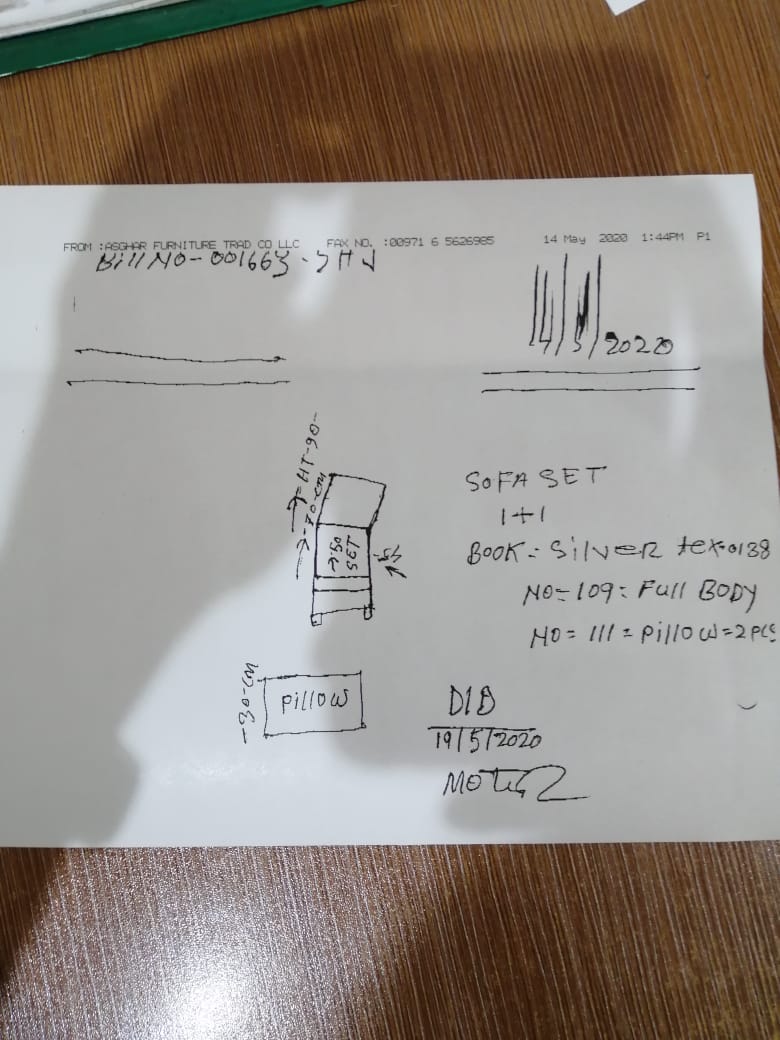 FROM :ASGHAR FURNITURE TRAD CO LLC FAX NO. :00971 6 5626985 14 May 2020 1:44PM P1
Bill NO-001663-SHJ
14/5/2020
HT-90-
70-CM
50
SET
SOFA SET
1+1
BOOK = SilVER tex-0138
NO=109= Full BODY
NO= 111 = pillow=2 PCS
-30-CM
pillow
D1D
19/5/2020